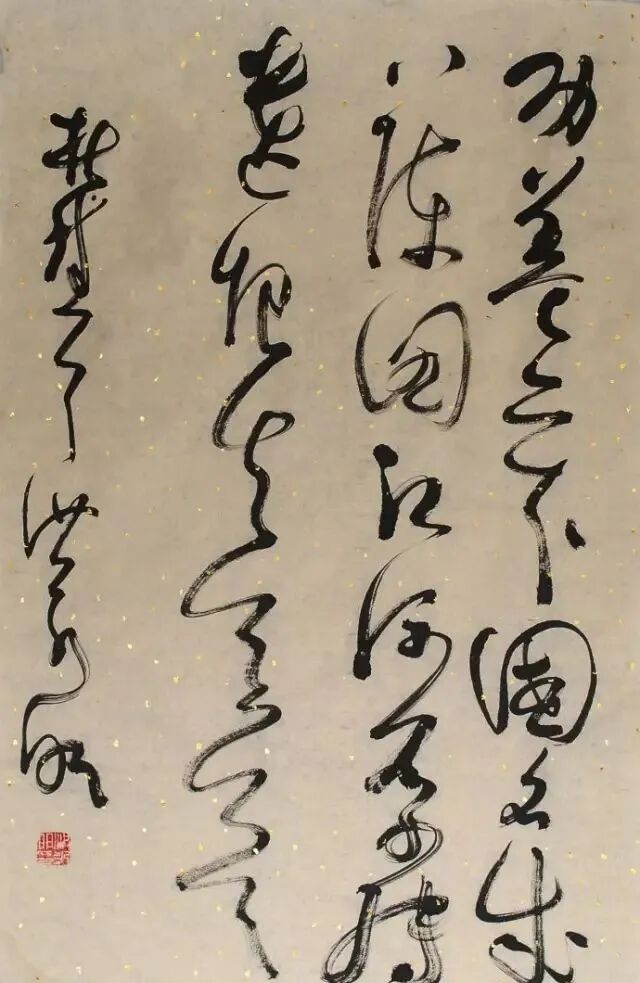 功蓋三分國名成
八陣圖江流石不轉
遺恨失吞吳
杜詩 洪